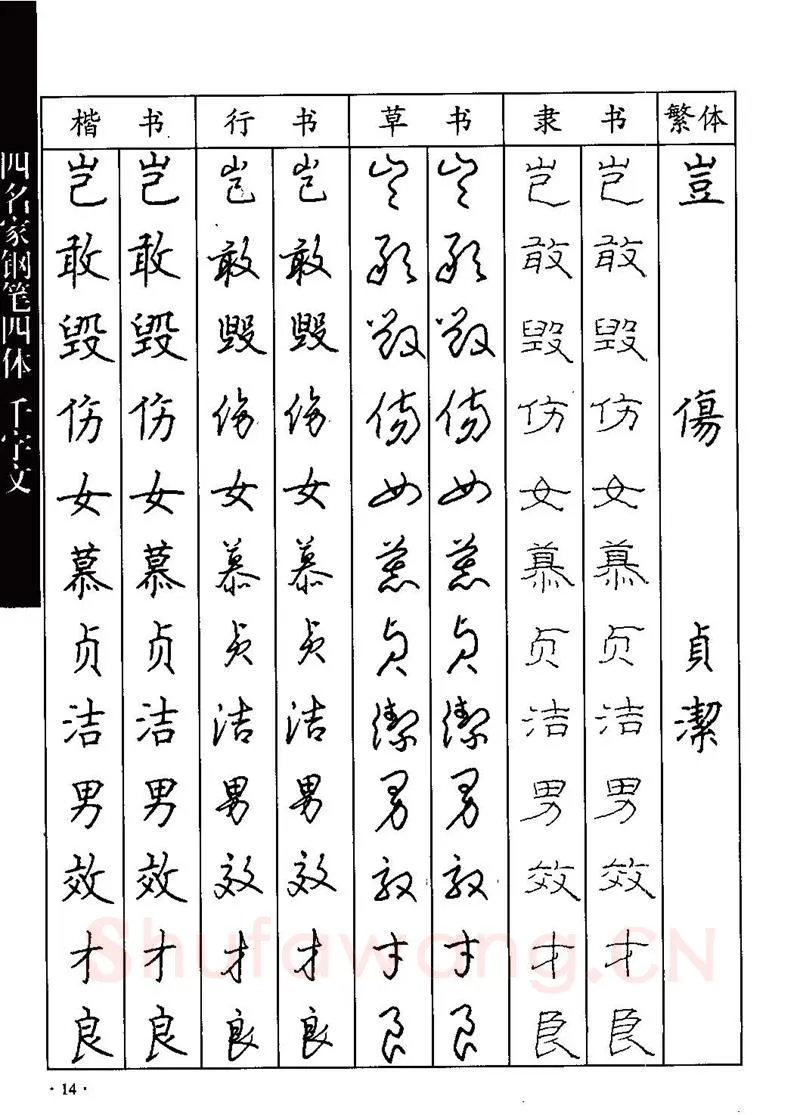 四名家钢笔四体 千字文
楷书 行书 草书 隶书 繁体
岂 岂 岂 岂 岂 岂 岂 岂 豈
敢 敢 敢 敢 敢 敢 敢 敢
毁 毁 毁 毁 毁 毁 毁 毁
伤 伤 伤 伤 傷 傷 伤 伤 傷
女 女 女 女 女 女 女 女
慕 慕 慕 慕 慕 慕 慕 慕
贞 贞 贞 贞 贞 贞 贞 贞 貞
洁 洁 洁 洁 潔 潔 洁 洁 潔
男 男 男 男 男 男 男 男
效 效 效 效 效 效 效 效
才 才 才 才 才 才 才 才
良 良 良 良 良 良 良 良
Shufawang.CN
·14·